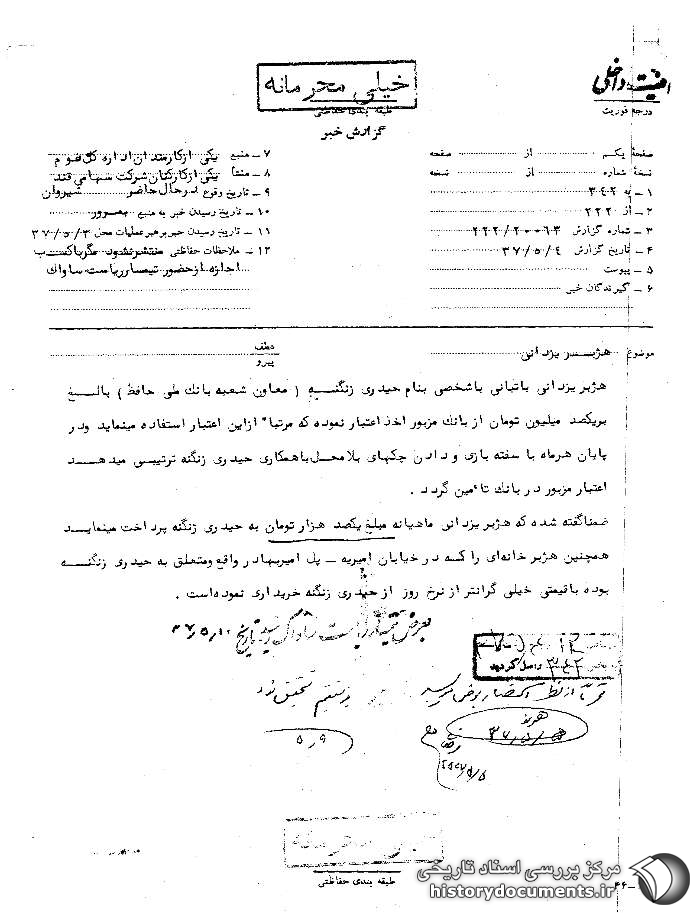 خیلی محرمانه
طبقه بندی حفاظتی
گزارش خبر
امنیت داخلی
درجه فوریت
صفحهٔ یکم از صفحه
نسخهٔ شماره از نسخه
۱ـ به ۳۴۲
۲ـ از ۲۲۲
۳ـ شماره گزارش ۲۲۲/۲۰۰۶۳
۴ـ تاریخ گزارش ۳۷/۵/۴
۵ـ پیوست
۶ـ گیرندگان خبر
۷ـ منبع یکی ازکارمندان اداره کل سوم
۸ـ منشأ یکی ازکارکنان شرکت سهامی قند شیروان
۹ـ تاریخ وقوع درحال حاضر
۱۰ـ تاریخ رسیدن خبر به منبع بمرور
۱۱ـ تاریخ رسیدن خبر برهبر عملیات محل ۳۷/۵/۳
۱۲ـ ملاحظات حفاظتی منتشر نشود مگر باکسب
اجازه از حضور تیمسار ریاست ساواک
موضوع هژبر یزدانی
عطف
پیرو
هژبر یزدانی باتبانی باشخصی بنام حیدری زنگنه ( معاون شعبه بانك ملی حافظ ) بالغ
بریکصد میلیون تومان از بانك مزبور اخذ اعتبار نموده که مرتبا" ازاین اعتبار استفاده مینماید ودر
پایان هرماه با سفته بازی و دادن چکهای بلامحل باهمکاری حیدری زنگنه ترتیبی میدهد
اعتبار مزبور در بانك تأمین گردد .
ضمناگفته شده که هژبر یزدانی ماهیانه مبلغ یکصد هزار تومان به حیدری زنگنه پرداخت مینماید
همچنین هژبر خانه‌ای را که در خیابان امیریه ـ پل امیربهادر واقع ومتعلق به حیدری زنگنه
بوده باقیمتی خیلی گرانتر از نرخ روز از حیدری زنگنه خریداری نموده‌است .
بعرض تیمسار ریاست ساواک رسید تاریخ ۳۷/۵/۱۰
۳۴۲ واصل گردید
تحقیق شود
هژبر
۳۷/۵/
۵ر۹
طبقه بندی حفاظتی
مرکز بررسی اسناد تاریخی
historydocuments.ir